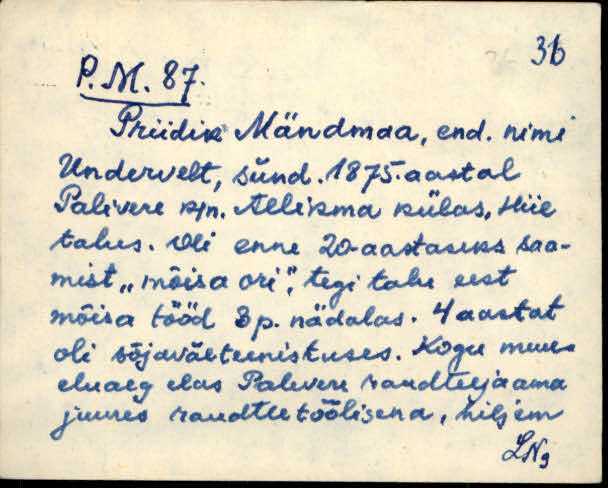 36
P. M. 87.
Priidik Mändmaa, end. nimi
Undervelt, sünd. 1875. aastal
Palivere k/n. Allikma külas, Hiie
talus. Oli enne 20-aastaseks saa-
mist „mõisa ori", tegi talu eest
mõisa tööd 3 p. nädalas. 4 aastat
oli sõjaväeteenistuses. Kogu muu
eluaeg elas Palivere raudteejaama
juures raudteetöölisena, hiljem